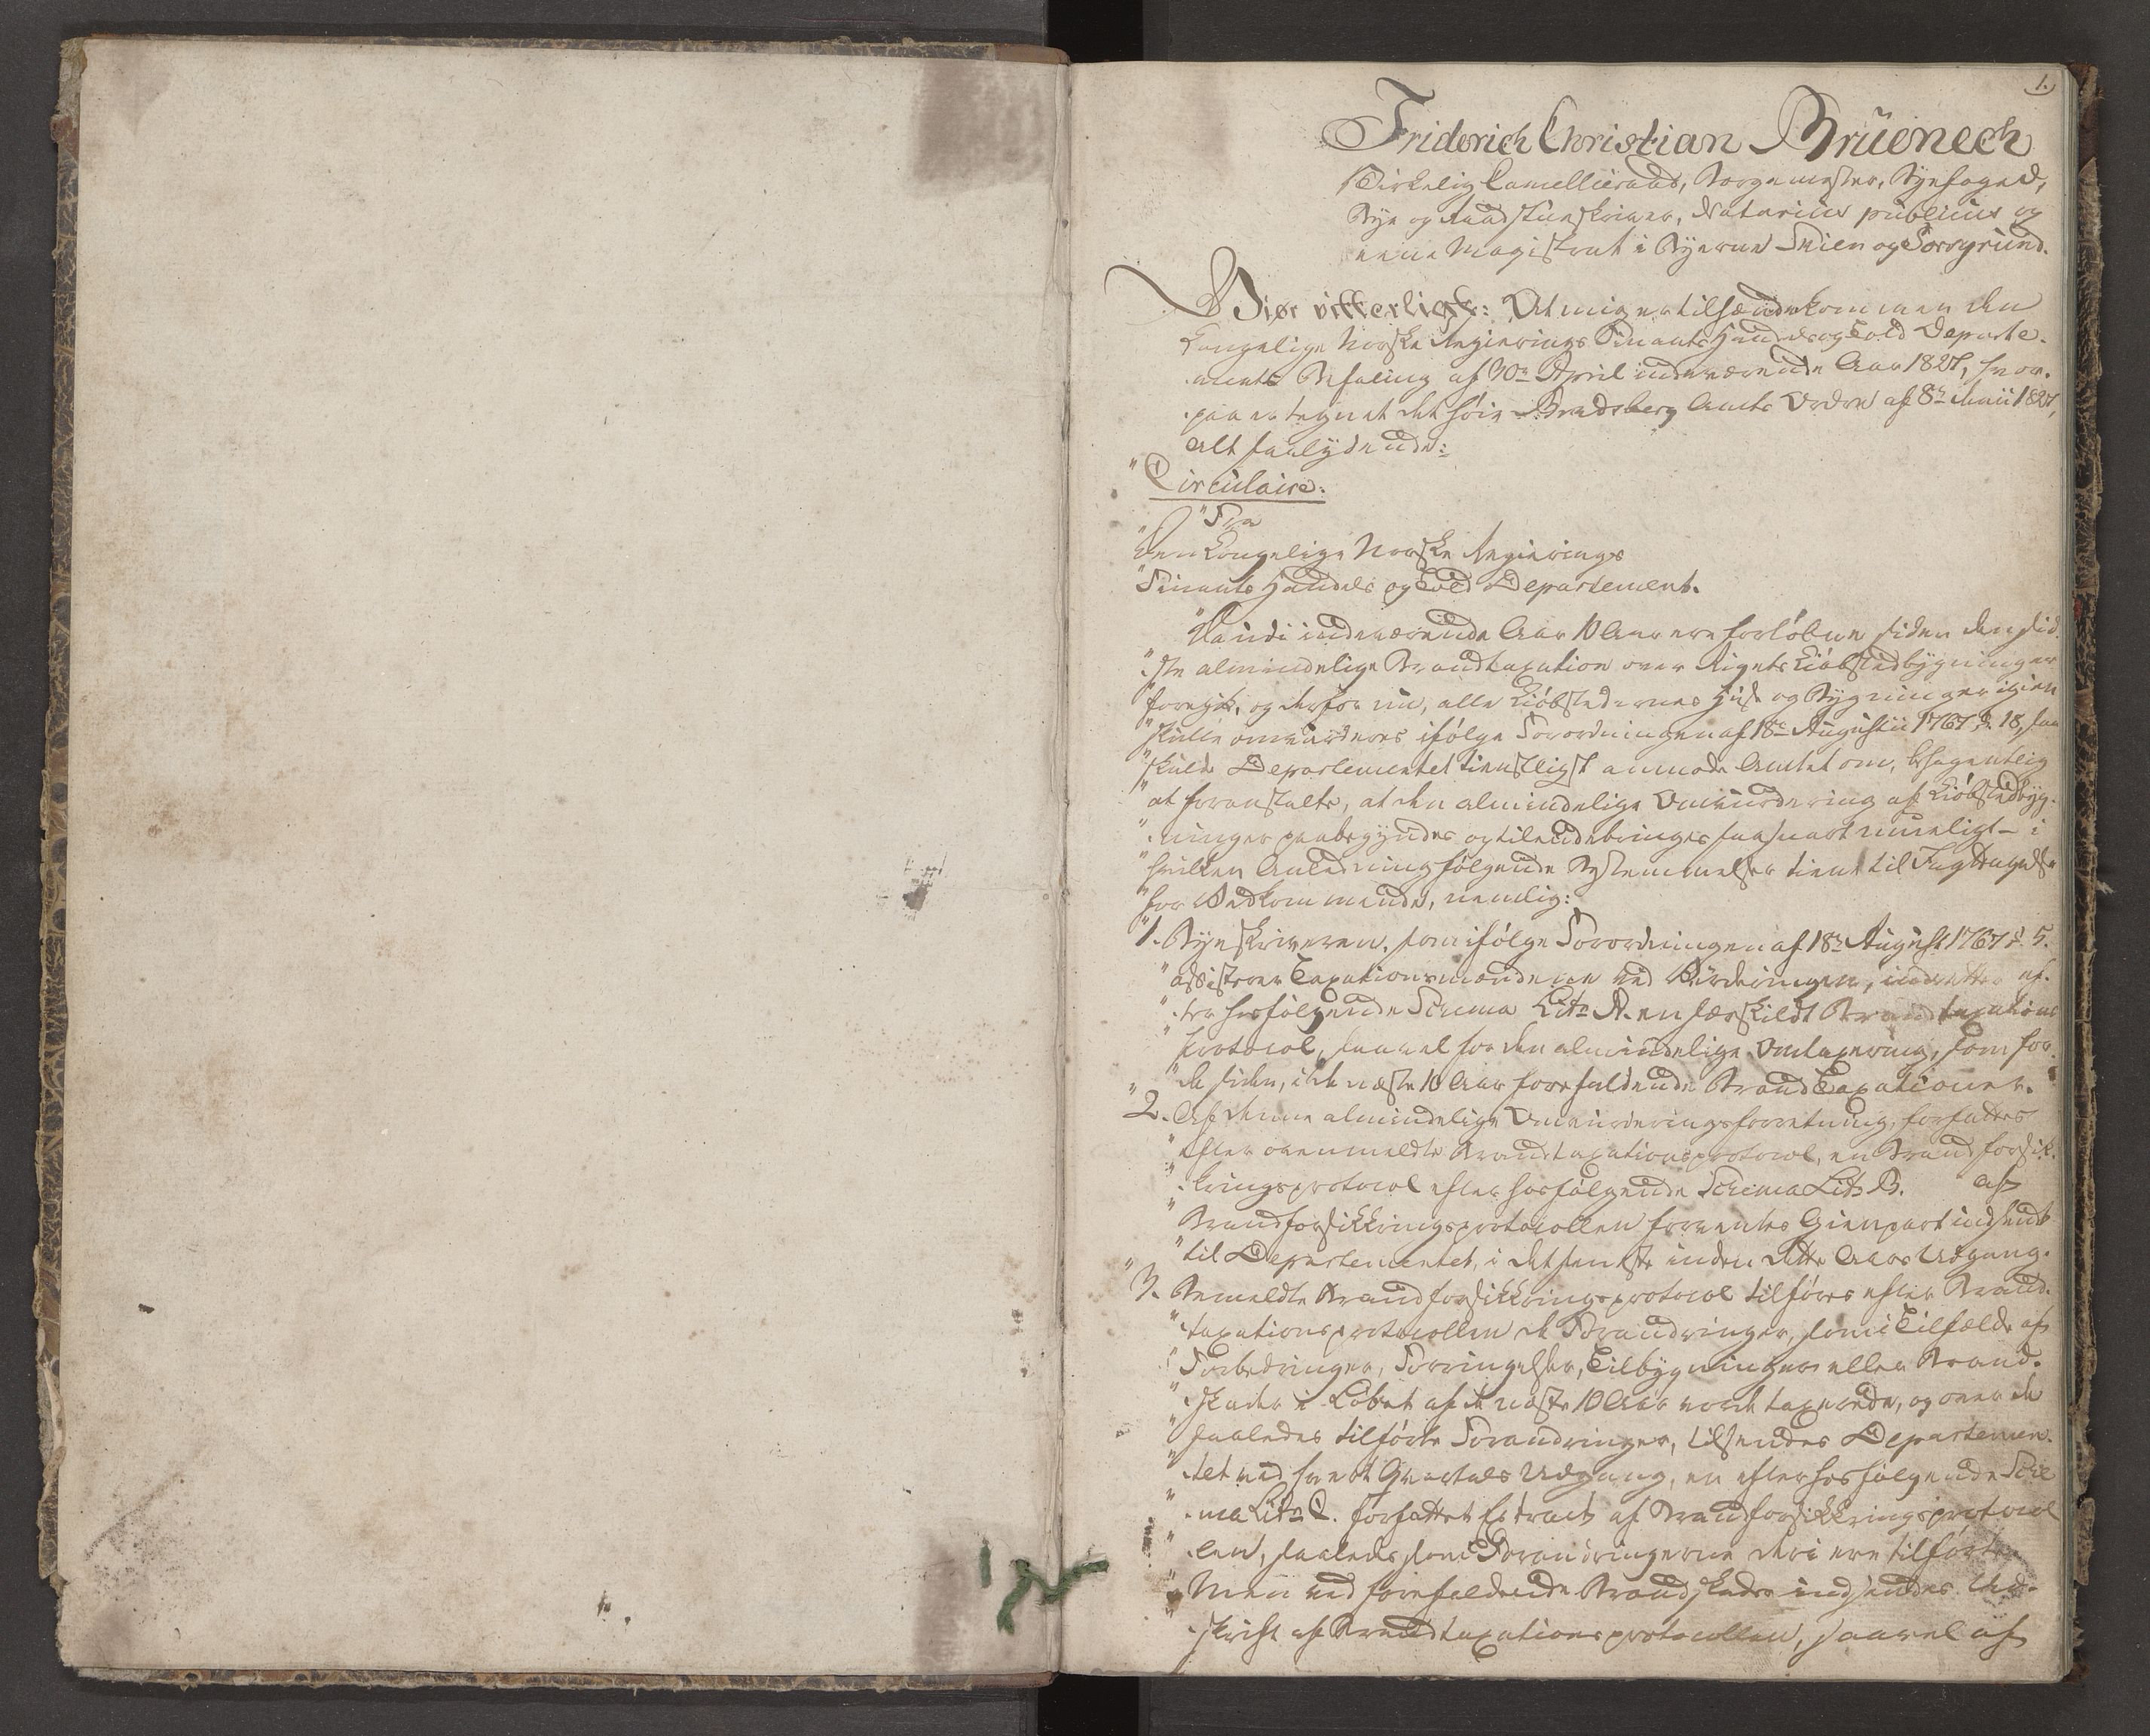 1.
Friderich Christian Brüenech
Virkelig Cancellieraad, Borgemester, Byefoged,
Bye og Raadstueskriver, Notarius publicus og
eene Magistrat i Byerne Skien og Porsgrund.
Giør vitterligt: At mig er tilhændekommen den
Kongelige Norske Regierings Finants Handels og Told Departe-
ments Befaling af 30te April indeværende Aar 1827, hvor-
paa er tegnet det høie Bradsberg Amts Ordre af 8de Maii 1827,
alt saalydende:
"Circulaire:
"Fra
"Den Kongelige Norske Regierings
"Finants Handels og Told Departement.
"Da i indeværende Aar 10 Aar ere forløbne siden den sid-
"ste almindelige Brandtaxation over Rigets Kiøbstedbygninger
"foregik, og derfor nu, alle Kiøbstedernes Huse og Bygninger igien
"skulle omvurderes ifølge Forordningen af 18de Augustii 1767 §. 18, saa
"skulde Departementet tienstligst anmode Amtet om, behagentlig
"at foranstalte, at den almindelige Omvurdering af Kiøbstedbyg-
"ninger paabegyndes og tilendebringes saasnart mueligt – i
"hvilken Anledning følgende Bestemmelser tient til Iagttagelse
"for Vedkommende, nemlig:
"1. Byeskriveren, som ifølge Forordningen af 18de August 1767 §. 5.
"assisterer Taxationsmændene ved Vurderingen, indretter ef-
"ter hosfølgende Schema Litr A. en særskildt Brandtaxations
"protocol, saavel for den almindelige Omtaxering, som for
"de siden, i de næste 10 Aar forefaldende Brand Taxationer.
"2. Af denne almindelige Omvurderingsforretning, forfattes
"efter ovenmeldte Brandtaxationsprotocol, en Brandforsik-
"kringsprotocol efter hosfølgende Schema Litr B. af
"Brandforsikkringsprotocollen forventes Gienpart indsendt
"til Departementet, i det seneste inden dette Aars Udgang.
"3. Bemeldte Brandforsikkringsprotocol tilføres efter Brand-
"taxationsprotocollen de Forandringer, som i Tilfælde af
"Forbedringer, Forringelser, Tilbygninger eller Brand-
"skader i Løbet af de næste 10 Aar vorde taxerede, og over de
"saaledes tilførte Forandringer, tilsendes Departemen-
"tet ved hvert Qvartals Udgang, en efter hosfølgende Sche
"ma Litr C. forfattet Extract af Brandforsikkringsprotocol
"len, saaledes som Forandringerne deri ere tilførte.
"Men ved forefaldende Brandskader indsendes Ud-
"skrift af Brandtaxationsprotocollen, saavel af